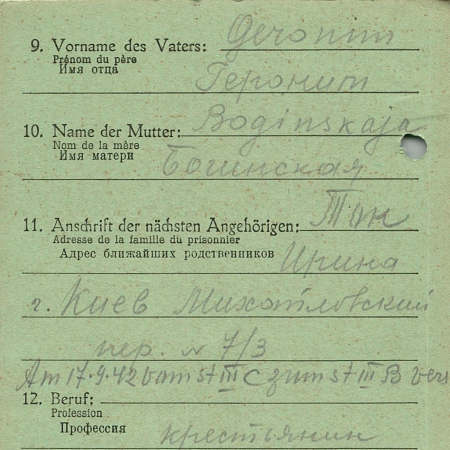 9. Vorname des Vaters: Geronim
Prénom du père
Имя отца
Героним
10. Name der Mutter: Boginskaja
Nom de la mère
Имя матери
Богинская
11. Anschrift der nächsten Angehörigen: Тан
Adresse de la famille du prisonnier
Адрес ближайших родственников Ирина
г. Киев Михайловский
пер. № 7/3
Am 17.9.42 vom St III C zum St III B vers
12. Beruf:
Profession
Профессия крестьянин